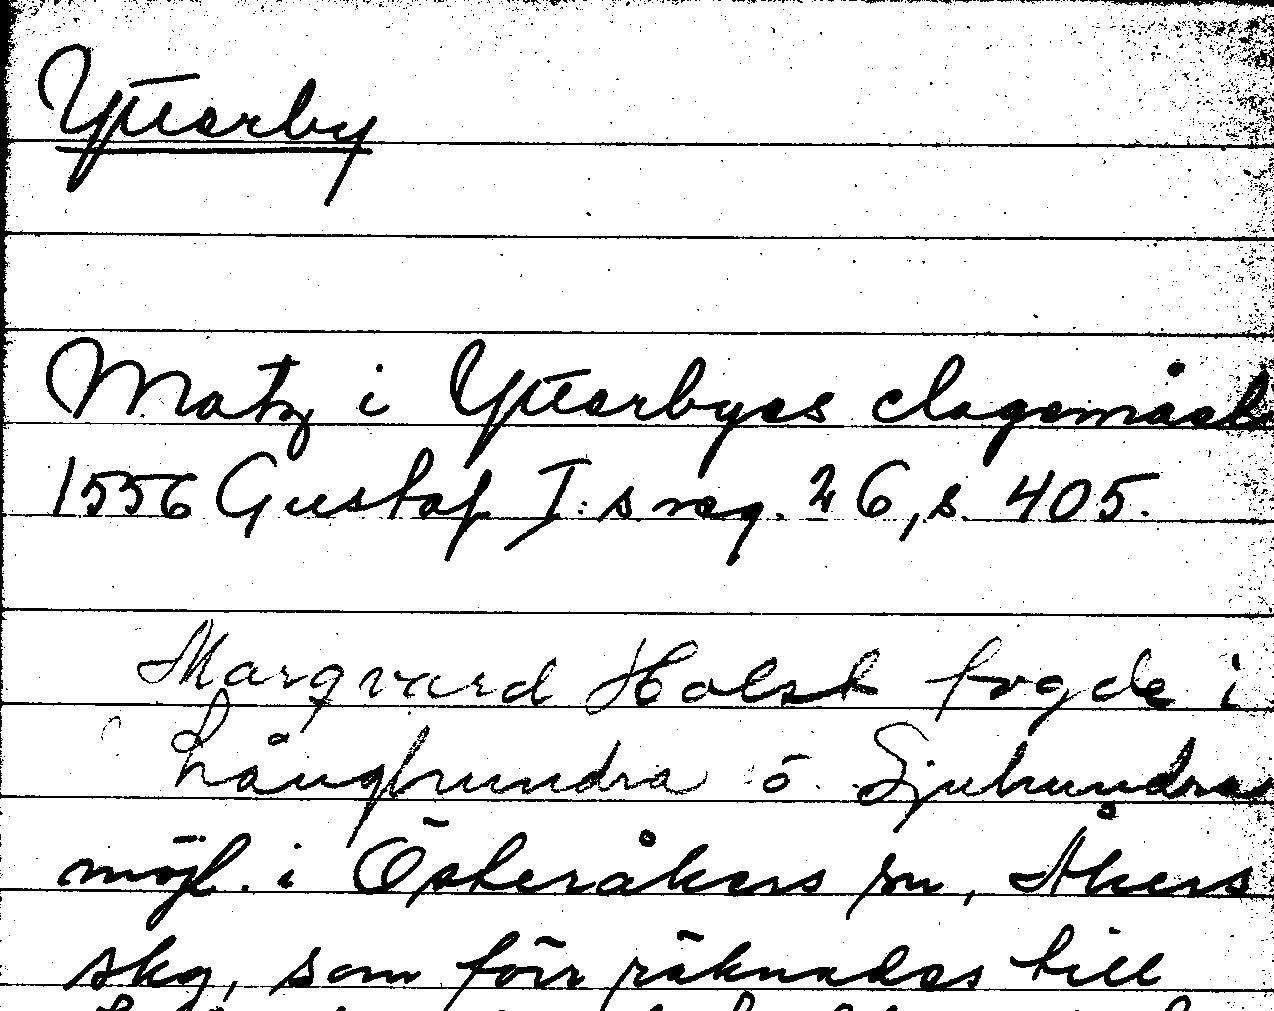 Ytterby
Matz i Ytterbyes clagemaal
1556 Gustaf I:s reg. 26, s. 405.
Marqvard Holst fogde i
Långhundra o. Sjuhundra
möjl. i Österåkers sn, Åkers
skg, som förr räknades till